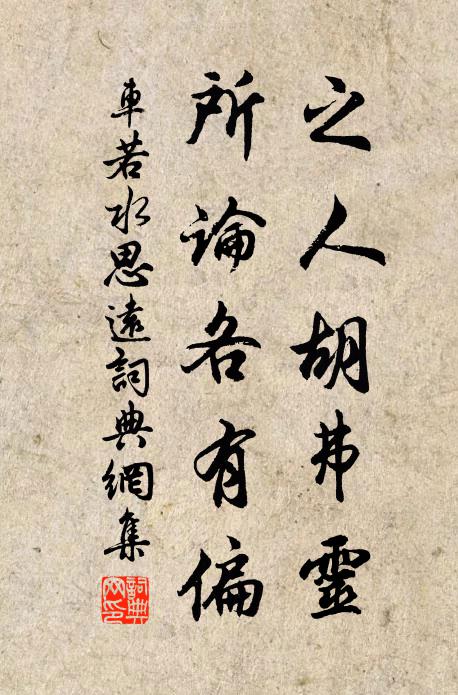 之人胡弗靈
所論各有偏
車若水思遠詞典網集
詞典網印